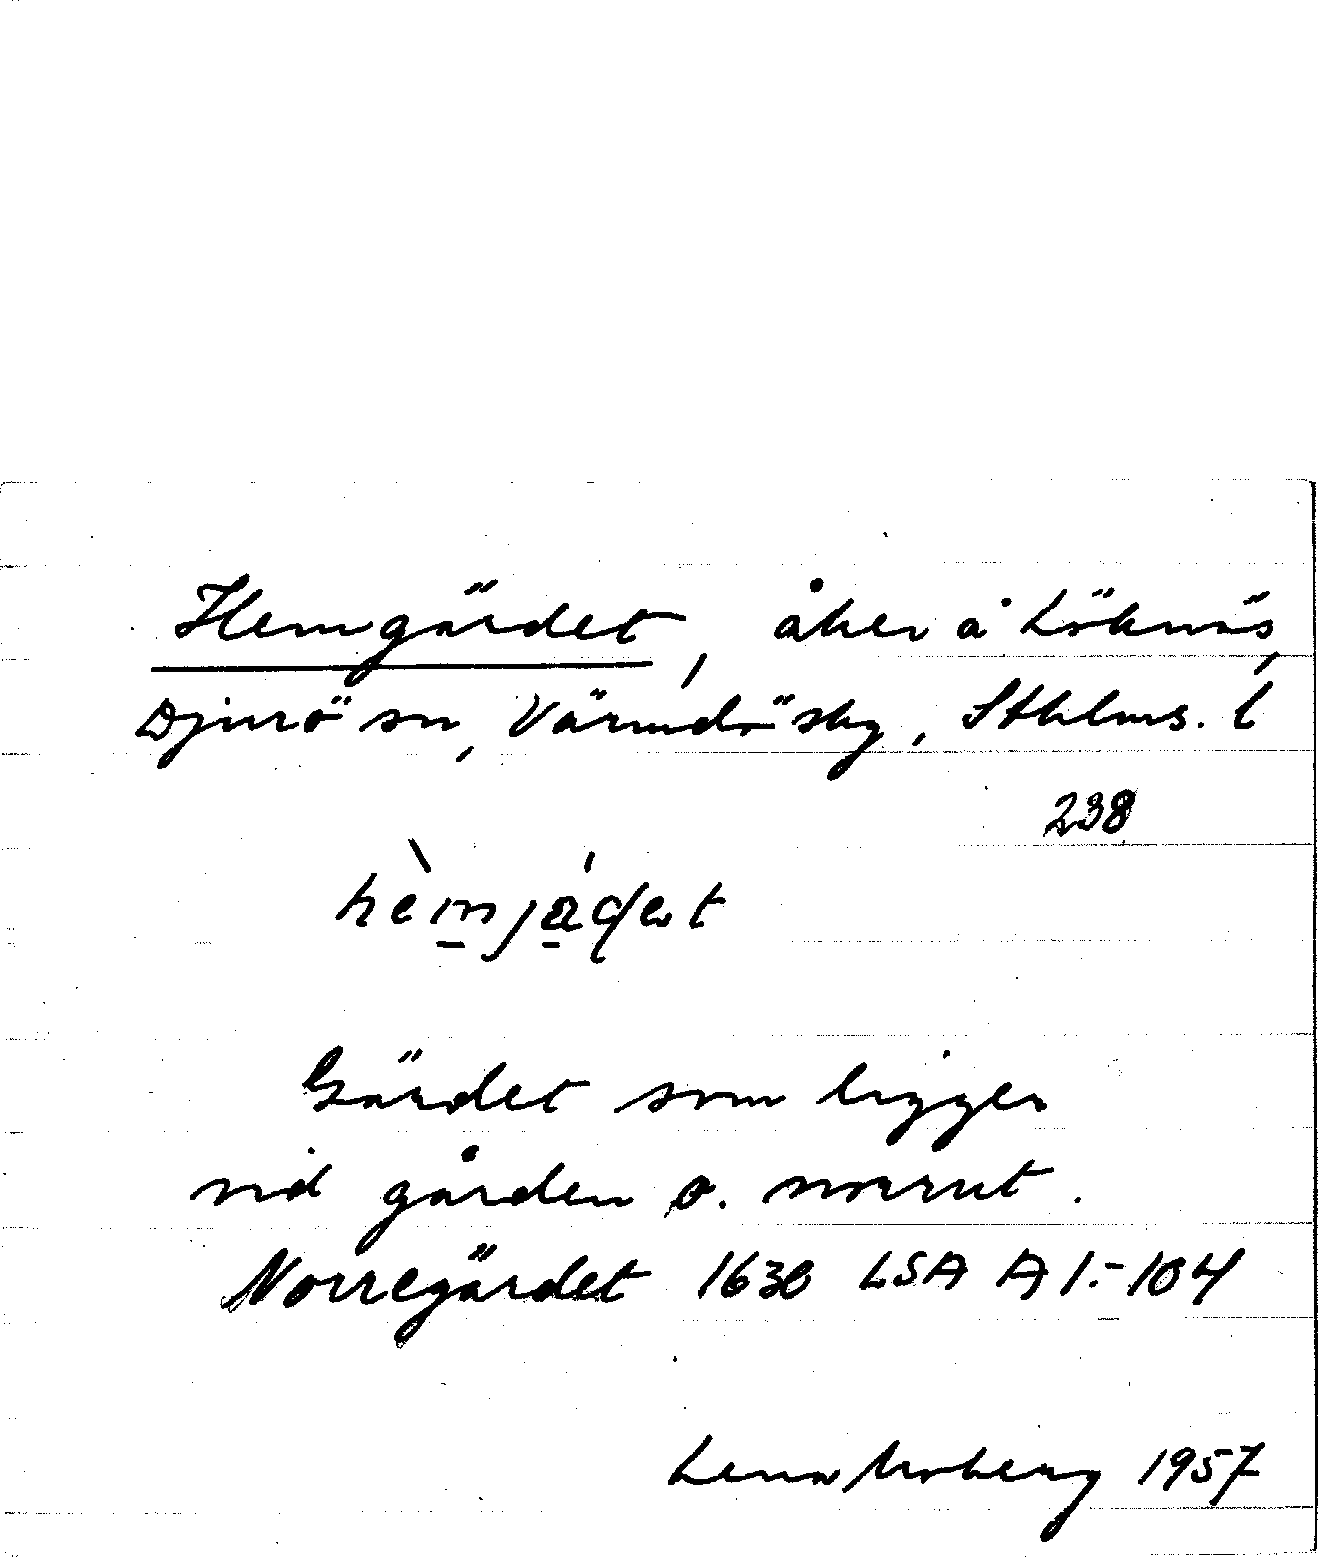 Hemgärdet, åker å Löknäs,
Djurö sn, Värmdö skg, Sthlms. l
238
hèmjádet
Gärdet som ligger
vid gården o. norrut.
Norregärdet 1630 LSA A 1:-104
Lena Moberg 1957